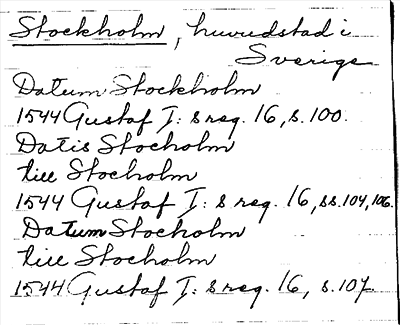 Stockholm, huvudstad i
Sverige
Datum Stockholm
1544 Gustaf I: s reg. 16, s. 100.
Datis Stocholm
till Stocholm
1544 Gustaf I: s reg. 16, ss. 104, 106.
Datum Stocholm
till Stocholm
1544 Gustaf I: s reg. 16, s. 107.